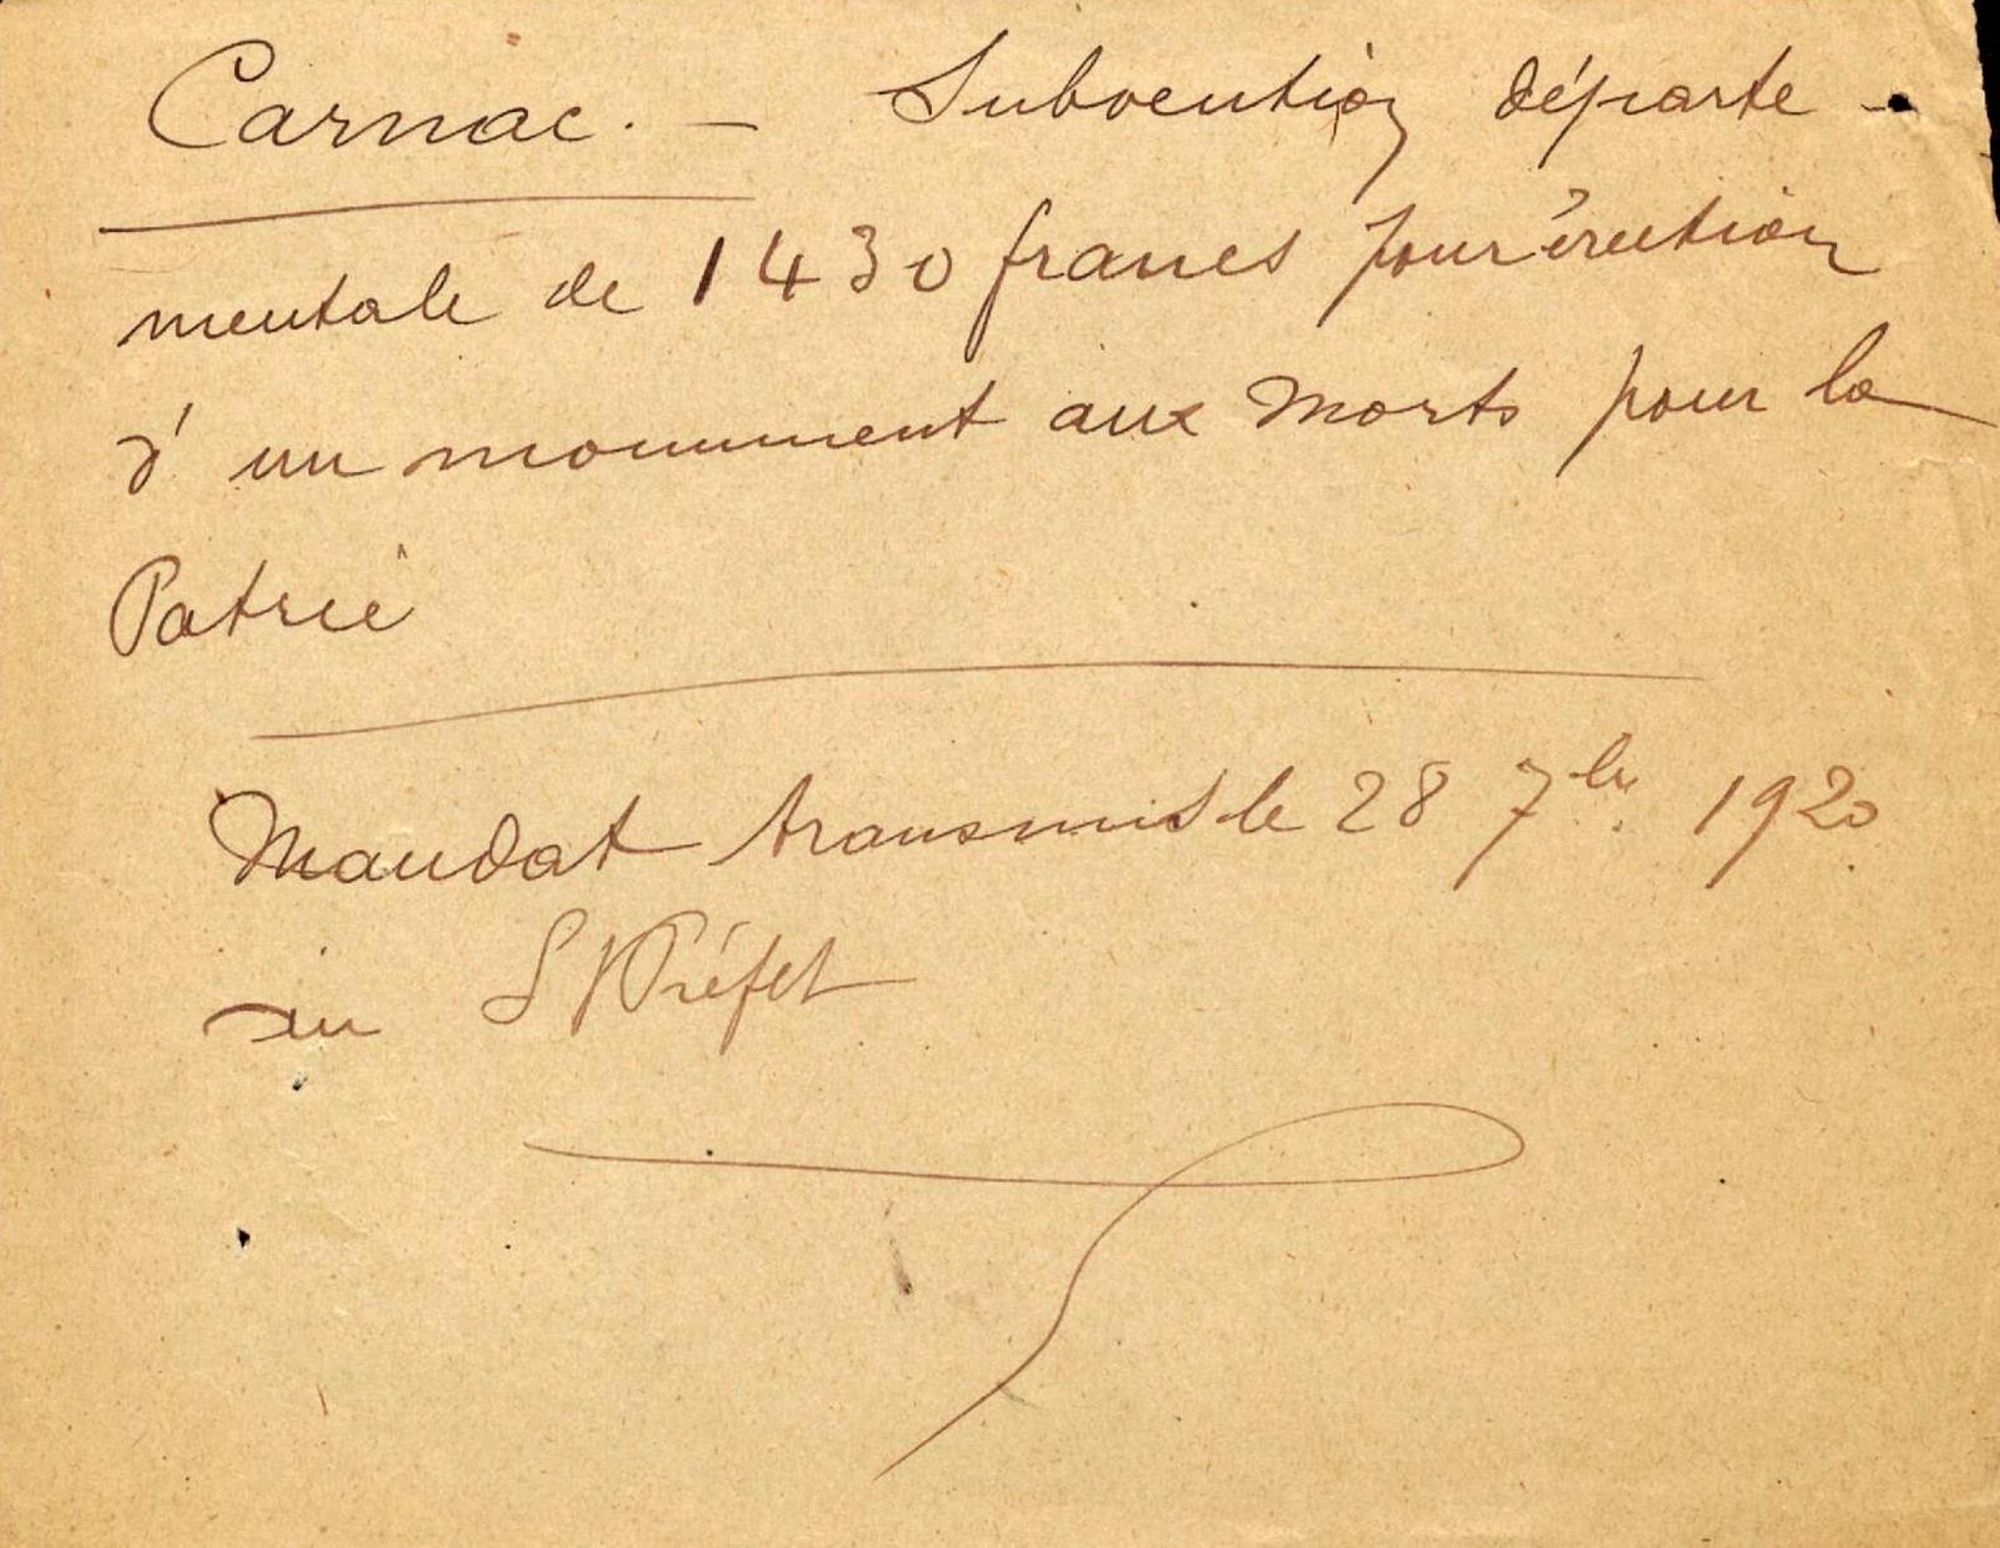 Carnac. — Subvention départe-
mentale de 1430 francs pour érection
d'un monument aux Morts pour la
Patrie
Mandat transmis le 28 7bre 1920
au S/Préfet